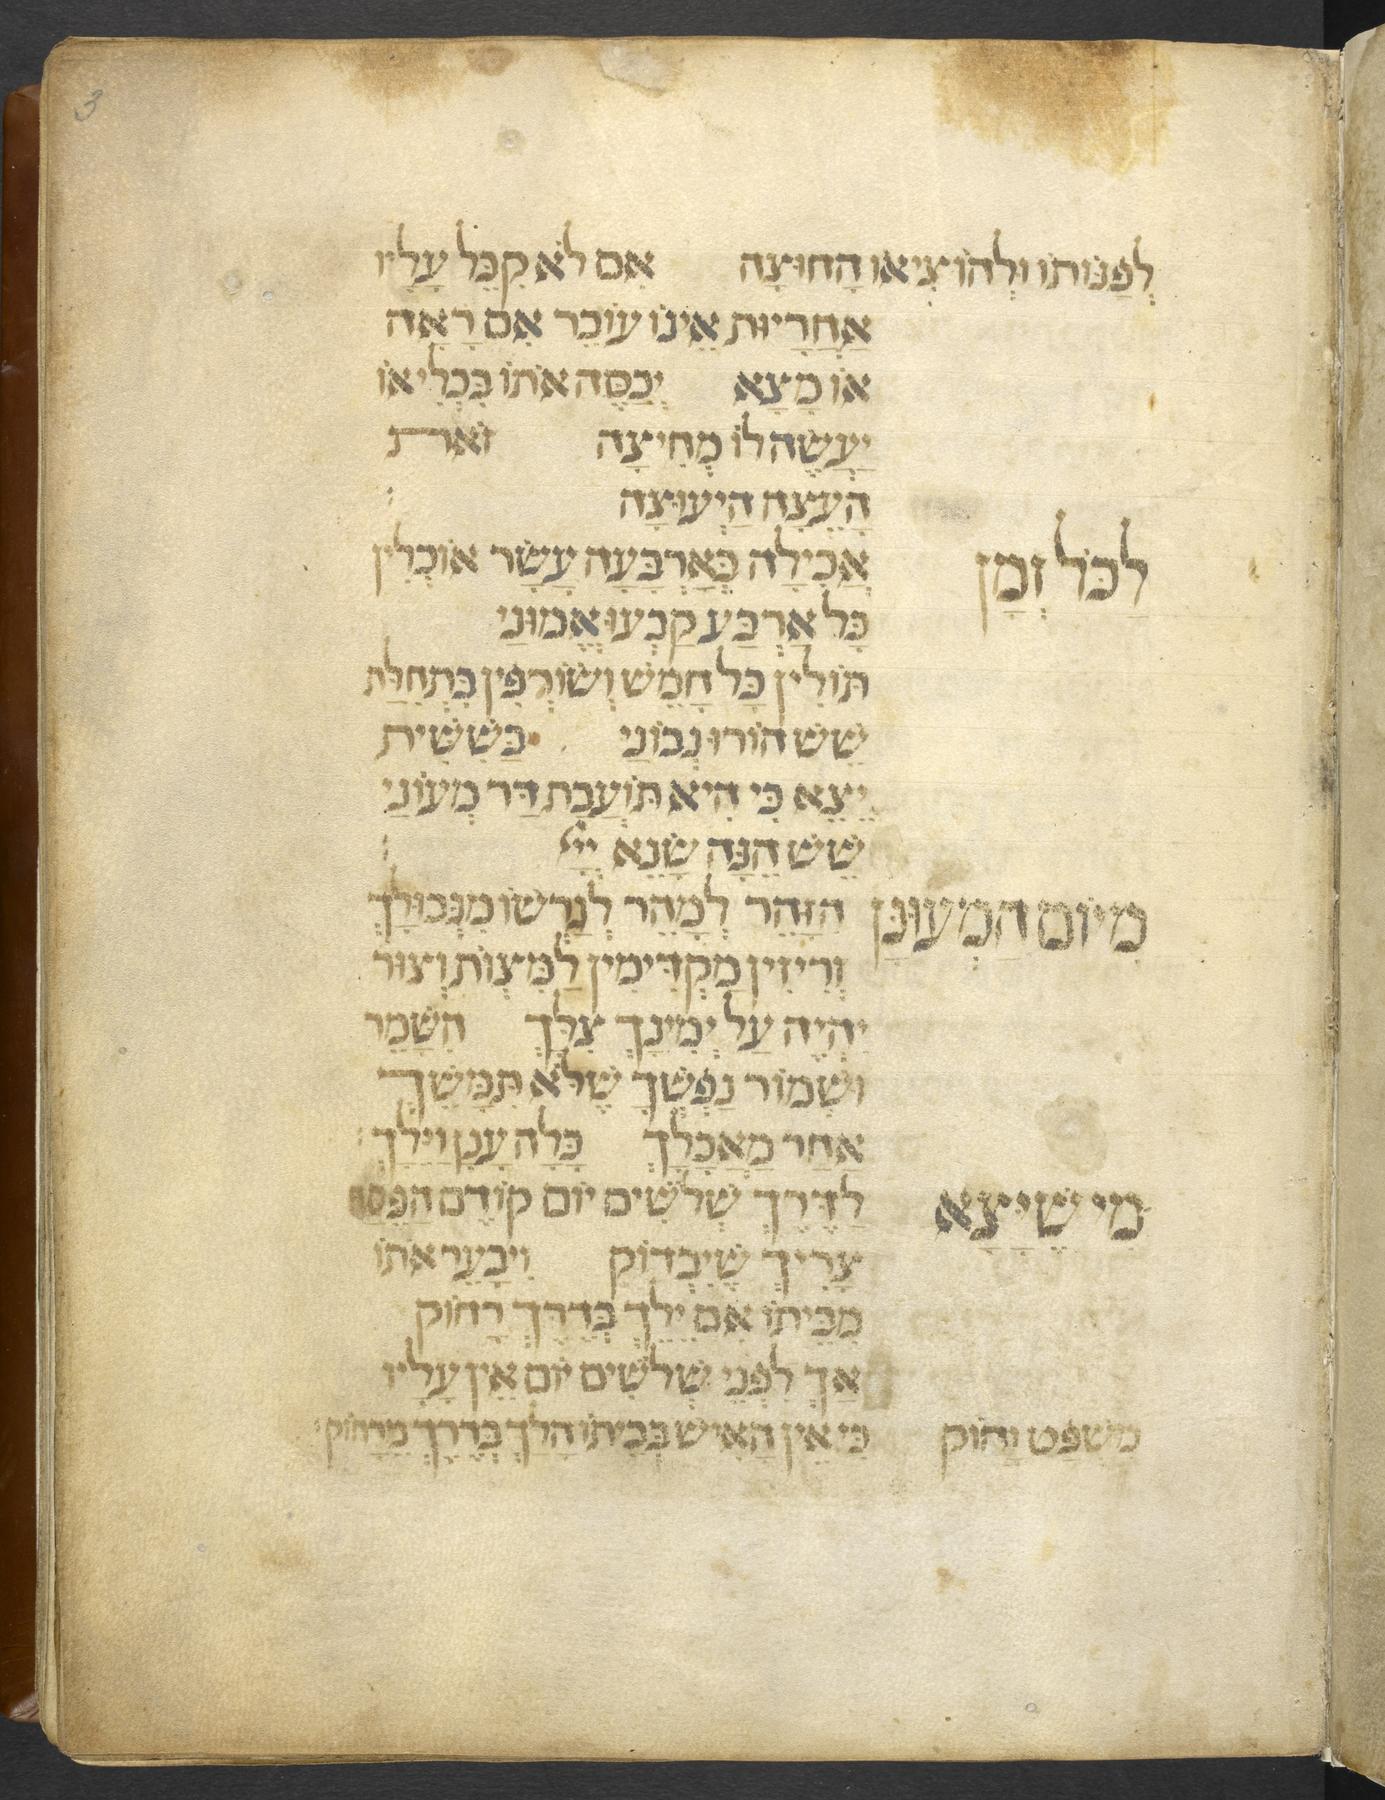 3
לְפַנּוֹתוֹ וּלְהוֹצִיאוֹ הַחוּצָה אִם לֹא קִבֵּל עָלָיו
אַחֲרָיוּת אֵינוֹ עוֹבֵר אִם רָאָה
אוֹ מָצָא יְכַסֶּה אֹתוֹ בִּכְלִי אוֹ
יַעֲשֶׂה לוֹ מְחִיצָה זֹאת
הָעֵצָה הַיְּעוּצָה
לְכֹל זְמָן אֲכִילָה בְּאַרְבָּעָה עָשָׂר אוֹכְלִין
כָּל אַרְבַּע קָבְעוּ אֱמוּנַי
תּוֹלִין כָּל חָמֵשׁ וְשׂוֹרְפִין בִּתְחִלַּת
שֵׁשׁ הוֹרוּ נְבוֹנַי בַּשִּׁשִּׁית
יֵצֵא כִּי הִיא תּוֹעֲבַת דַּר מְעוֹנַי
שֵׁשׁ הֵנָּה שָׂנֵא יְיָ
מִיּוֹם הַמְעוּנָּן הִזָּהֵר לְמַהֵר לְגָרְשׁוֹ מִגְּבוּלָךְ
זְרִיזִין מַקְדִּימִין לַמִּצְוֹת וְצוּר
יִהְיֶה עַל יְמִינָךְ צִלָּךְ הִשָּׁמֵר
וּשְׁמוֹר נַפְשָׁךְ שֶׁלֹּא תִמָּשֵׁךְ
אַחַר מַאֲכָלָךְ כָּלָה עָנָן וַיֵּלַךְ
מִי שֶׁיָּצָא לַדֶּרֶךְ שְׁלֹשִׁים יוֹם קוֹדֶם הַפֶּסַח
צָרִיךְ שֶׁיִּבְדּוֹק וִיבַעֵר אֹתוֹ
מִבֵּיתוֹ אִם יֵלֵךְ בְּדֶרֶךְ רָחוֹק
אַךְ לִפְנֵי שְׁלֹשִׁים יוֹם אֵין עָלָיו
מִשְׁפַּט וָחוֹק כִּי אֵין הָאִישׁ בְּבֵיתוֹ הָלַךְ בְּדֶרֶךְ מֵרָחוֹק